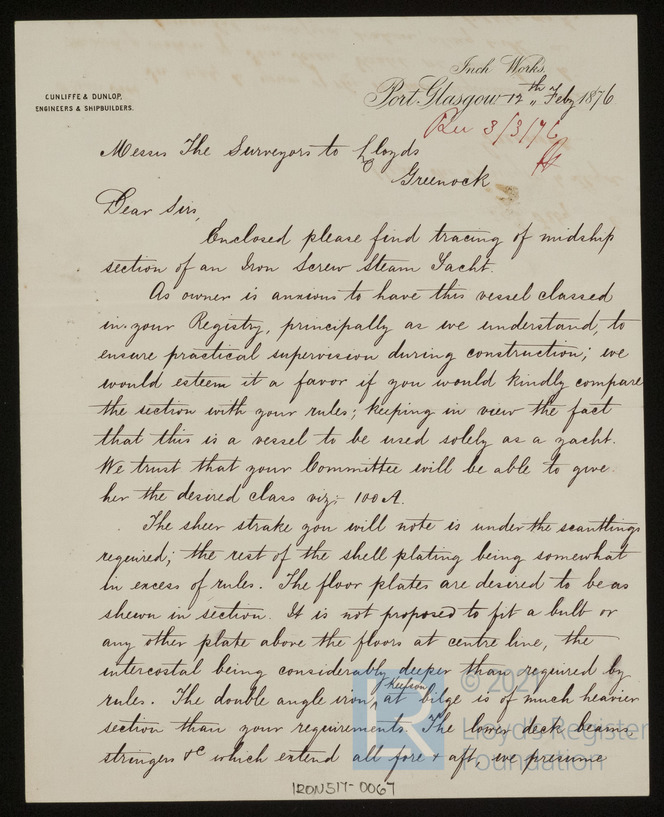 CUNLIFFE & DUNLOP,
ENGINEERS & SHIPBUILDERS.
Inch Works,
Port Glasgow 12th Feby 1876
Rec 3/3/76
Messrs The Surveyors to Lloyds
Greenock
Dear Sirs,
Enclosed please find tracing of midship
section of an Iron Screw Steam Yacht.
As owner is anxious to have this vessel classed
in your Registry, principally as we understand, to
ensure practical supervision during construction; we
would esteem it a favor if you would kindly compare
the section with your rules; keeping in view the fact
that this is a vessel to be used solely as a yacht.
We trust that your Committee will be able to give
her the desired class viz:- 100A.
The sheer strake you will note is under the scantlings
required; the rest of the shell plating being somewhat
in excess of rules. The floor plates are desired to be as
shewn in section. It is not proposed to fit a bulb or
any other plate above the floors at centre line, the
intercostal being considerably deeper than required by
rules. The double angle iron keelson at bilge is of much heavier
section than your requirements. The lower deck beams
stringers &c which extend all fore & aft, we presume
© 2021
LR
Lloyd's Register
Foundation
IRON517-0067